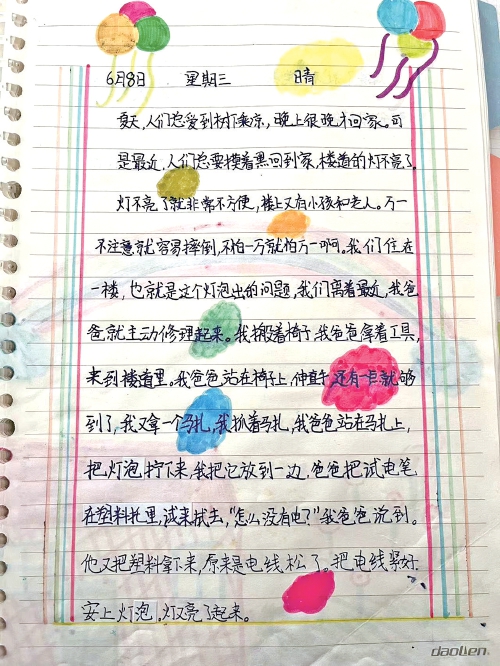 6月8日 星期三 晴
夏天,人们总爱到树下乘凉,晚上很晚才回家。可
是最近,人们总要摸着黑回到家,楼道的灯不亮了。
灯不亮了就非常不方便,楼上又有小孩和老人。万一
不注意就容易摔倒,不怕一万就怕万一啊。我们住在
一楼,也就是这个灯泡出的问题,我们离着最近,我爸
爸就主动修理起来。我搬着椅子,我爸爸拿着工具,
来到楼道里。我爸爸站在椅子上,伸直手还有一点就够
到了,我又拿一个马扎,我扒着马扎,我爸爸站在马扎上,
把灯泡拧下来,我把它放到一边,爸爸把试电笔
在塑料托里,试来试去,“怎么没有电?”我爸爸说到。
他又把塑料拿下来,原来是电线松了。把电线紧好
安上灯泡,灯又亮了起来。
daolien